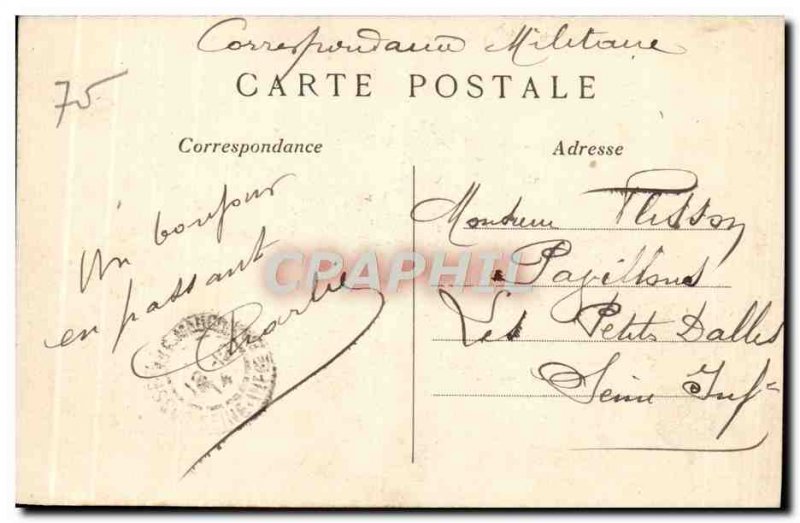 Correspondance Militaire
75
CARTE POSTALE
Correspondance
Adresse
Un bonjour
en passant
Charlie
Monsieur Flisson
Pavillons
Les Petits Dalles
Seine Infre
CPAPHIL